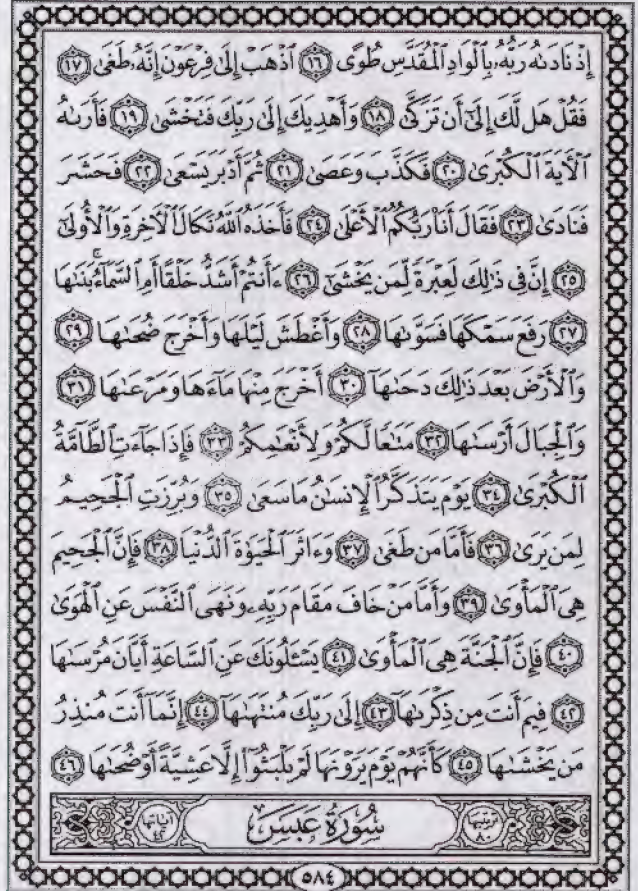 إِذْ نَادَىٰهُ رَبُّهُۥ بِٱلْوَادِ ٱلْمُقَدَّسِ طُوًى ١٦ ٱذْهَبْ إِلَىٰ فِرْعَوْنَ إِنَّهُۥ طَغَىٰ ١٧
فَقُلْ هَل لَّكَ إِلَىٰٓ أَن تَزَكَّىٰ ١٨ وَأَهْدِيَكَ إِلَىٰ رَبِّكَ فَتَخْشَىٰ ١٩ فَأَرَىٰهُ
ٱلْأٓيَةَ ٱلْكُبْرَىٰ ٢٠ فَكَذَّبَ وَعَصَىٰ ٢١ ثُمَّ أَدْبَرَ يَسْعَىٰ ٢٢ فَحَشَرَ
فَنَادَىٰ ٢٣ فَقَالَ أَنَا۠ رَبُّكُمُ ٱلْأَعْلَىٰ ٢٤ فَأَخَذَهُ ٱللَّهُ نَكَالَ ٱلْأٓخِرَةِ وَٱلْأُولَىٰٓ
٢٥ إِنَّ فِى ذَٰلِكَ لَعِبْرَةً لِّمَن يَخْشَىٰٓ ٢٦ ءَأَنتُمْ أَشَدُّ خَلْقًا أَمِ ٱلسَّمَآءُ ۚ بَنَىٰهَا
٢٧ رَفَعَ سَمْكَهَا فَسَوَّىٰهَا ٢٨ وَأَغْطَشَ لَيْلَهَا وَأَخْرَجَ ضُحَىٰهَا ٢٩
وَٱلْأَرْضَ بَعْدَ ذَٰلِكَ دَحَىٰهَآ ٣٠ أَخْرَجَ مِنْهَا مَآءَهَا وَمَرْعَىٰهَا ٣١
وَٱلْجِبَالَ أَرْسَىٰهَا ٣٢ مَتَٰعًا لَّكُمْ وَلِأَنْعَٰمِكُمْ ٣٣ فَإِذَا جَآءَتِ ٱلطَّآمَّةُ
ٱلْكُبْرَىٰ ٣٤ يَوْمَ يَتَذَكَّرُ ٱلْإِنسَٰنُ مَا سَعَىٰ ٣٥ وَبُرِّزَتِ ٱلْجَحِيمُ
لِمَن يَرَىٰ ٣٦ فَأَمَّا مَن طَغَىٰ ٣٧ وَءَاثَرَ ٱلْحَيَوٰةَ ٱلدُّنْيَا ٣٨ فَإِنَّ ٱلْجَحِيمَ
هِىَ ٱلْمَأْوَىٰ ٣٩ وَأَمَّا مَنْ خَافَ مَقَامَ رَبِّهِۦ وَنَهَى ٱلنَّفْسَ عَنِ ٱلْهَوَىٰ
٤٠ فَإِنَّ ٱلْجَنَّةَ هِىَ ٱلْمَأْوَىٰ ٤١ يَسْـَٔلُونَكَ عَنِ ٱلسَّاعَةِ أَيَّانَ مُرْسَىٰهَا
٤٢ فِيمَ أَنتَ مِن ذِكْرَىٰهَآ ٤٣ إِلَىٰ رَبِّكَ مُنتَهَىٰهَآ ٤٤ إِنَّمَآ أَنتَ مُنذِرُ
مَن يَخْشَىٰهَا ٤٥ كَأَنَّهُمْ يَوْمَ يَرَوْنَهَا لَمْ يَلْبَثُوٓا۟ إِلَّا عَشِيَّةً أَوْ ضُحَىٰهَا ٤٦
ترتيبها ٨٠ سُورَةُ عَبَسَ آياتها ٤٢
٥٨٤